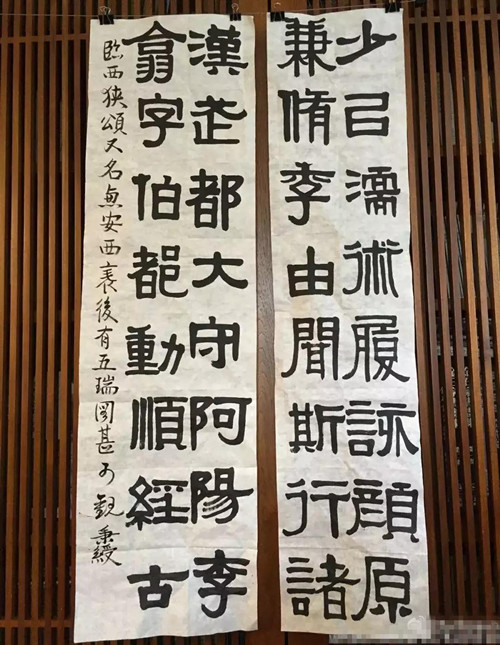 少㠯濡術履詠顔原
兼脩李由聞斯行諸
漢武都大守阿陽李
翕字伯都動順經古
臨西狹頌又名惠安西表後有五瑞圖甚可觀 秉綬